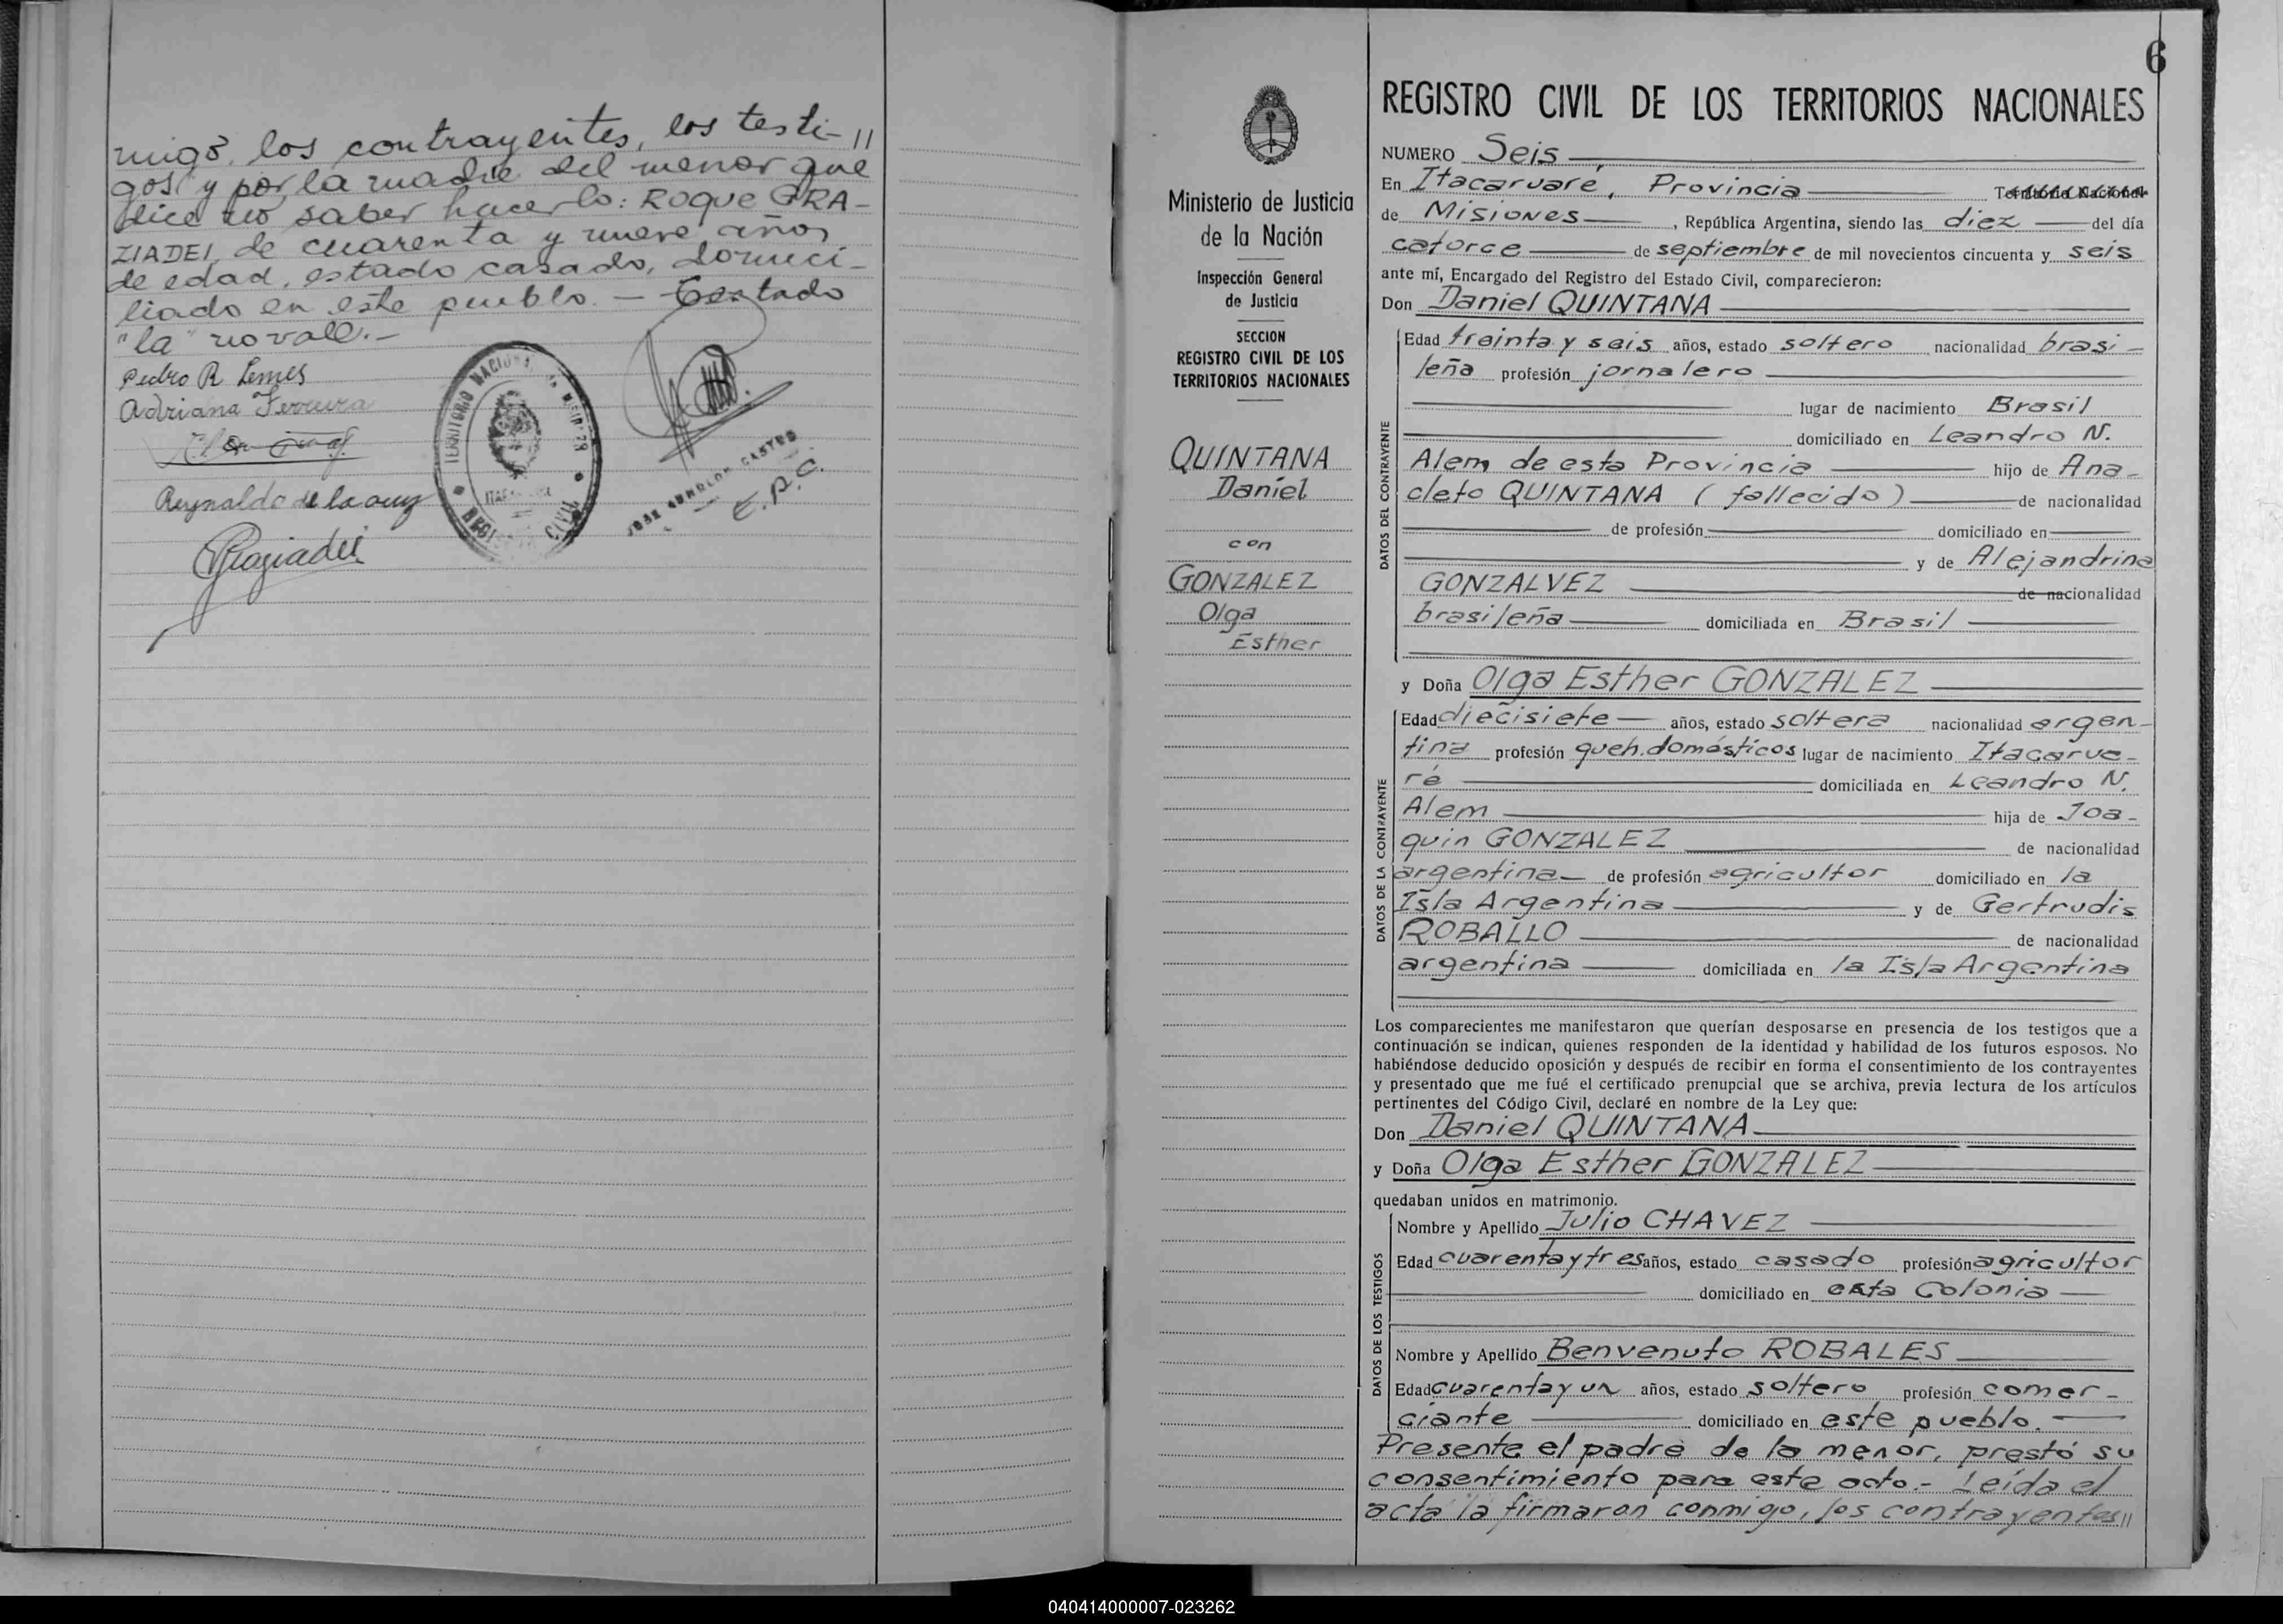 migo, los contrayentes, los testi-//
gos y por la madre del menor que
dice no saber hacerlo: Roque GRA-
ZIADEI, de cuarenta y nueve años
de edad, estado casado, domici-
liado en este pueblo. — Testado
"la" no vale.-
Pedro R Lemes
Adriana Ferreira
Reynaldo de la cruz
RGraziadei
TERRITORIO NACIONAL DE MISIONES
REGI CIVIL
JOSE CASTRO
E.R.C.
6
Ministerio de Justicia
de la Nación
Inspección General
de Justicia
SECCION
REGISTRO CIVIL DE LOS
TERRITORIOS NACIONALES
QUINTANA
Daniel
con
GONZALEZ
Olga
Esther
REGISTRO CIVIL DE LOS TERRITORIOS NACIONALES
NUMERO Seis
En Itacaruaré, Provincia Territorio Nacional
de Misiones, República Argentina, siendo las diez del día
catorce de septiembre de mil novecientos cincuenta y seis
ante mí, Encargado del Registro del Estado Civil, comparecieron:
Don Daniel QUINTANA
DATOS DEL CONTRAYENTE
Edad treinta y seis años, estado soltero nacionalidad brasi-
leña profesión jornalero
lugar de nacimiento Brasil
domiciliado en Leandro N.
Alem de esta Provincia hijo de Ana-
cleto QUINTANA (fallecido) de nacionalidad
de profesión domiciliado en
y de Alejandrina
GONZALVEZ de nacionalidad
brasileña domiciliada en Brasil
y Doña Olga Esther GONZALEZ
DATOS DE LA CONTRAYENTE
Edad diecisiete años, estado soltera nacionalidad argen-
tina profesión queh. domésticos lugar de nacimiento Itacarua-
ré domiciliada en Leandro N.
Alem hija de Joa-
quin GONZALEZ de nacionalidad
argentina de profesión agricultor domiciliado en la
Isla Argentina y de Gertrudis
ROBALLO de nacionalidad
argentina domiciliada en la Isla Argentina
Los comparecientes me manifestaron que querían desposarse en presencia de los testigos que a
continuación se indican, quienes responden de la identidad y habilidad de los futuros esposos. No
habiéndose deducido oposición y después de recibir en forma el consentimiento de los contrayentes
y presentado que me fué el certificado prenupcial que se archiva, previa lectura de los artículos
pertinentes del Código Civil, declaré en nombre de la Ley que:
Don Daniel QUINTANA
y Doña Olga Esther GONZALEZ
quedaban unidos en matrimonio.
DATOS DE LOS TESTIGOS
Nombre y Apellido Julio CHAVEZ
Edad cuarenta y tres años, estado casado profesión agricultor
domiciliado en esta Colonia
Nombre y Apellido Benvenuto ROBALES
Edad cuarenta y un años, estado soltero profesión comer-
ciante domiciliado en este pueblo.
Presente el padre de la menor, prestó su
consentimiento para este acto.- Leída el
acta la firmaron conmigo, los contrayentes//
040414000007-023262